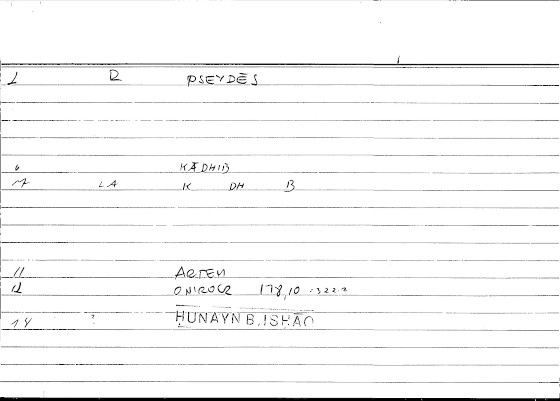 1 D PSEYDĒS
6 KĀDHIB
7 LA K DH B
11 ARTEM
12 ONIROCR 178,10 :322.2
14 HUNAYN B.ISHĀQ